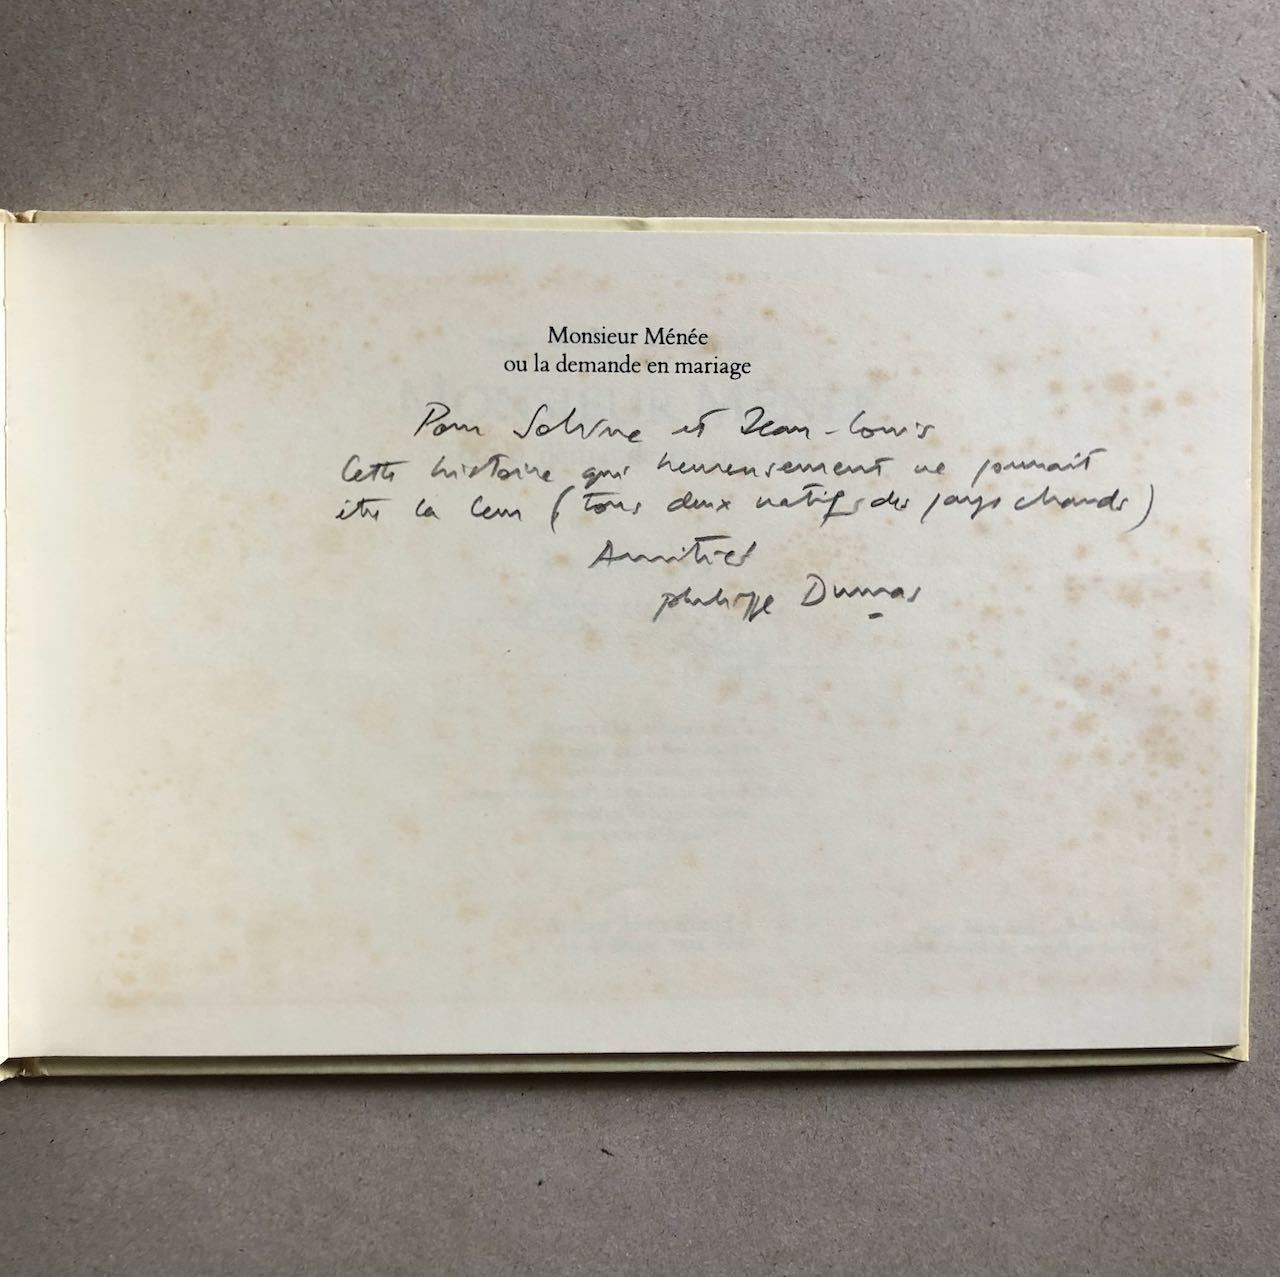 Monsieur Ménée
ou la demande en mariage
Pour et Jean-Louis
Cette histoire qui heureusement ne pourrait
être la leur (tous deux natifs des pays chauds)
Amitiés
philippe Dumas